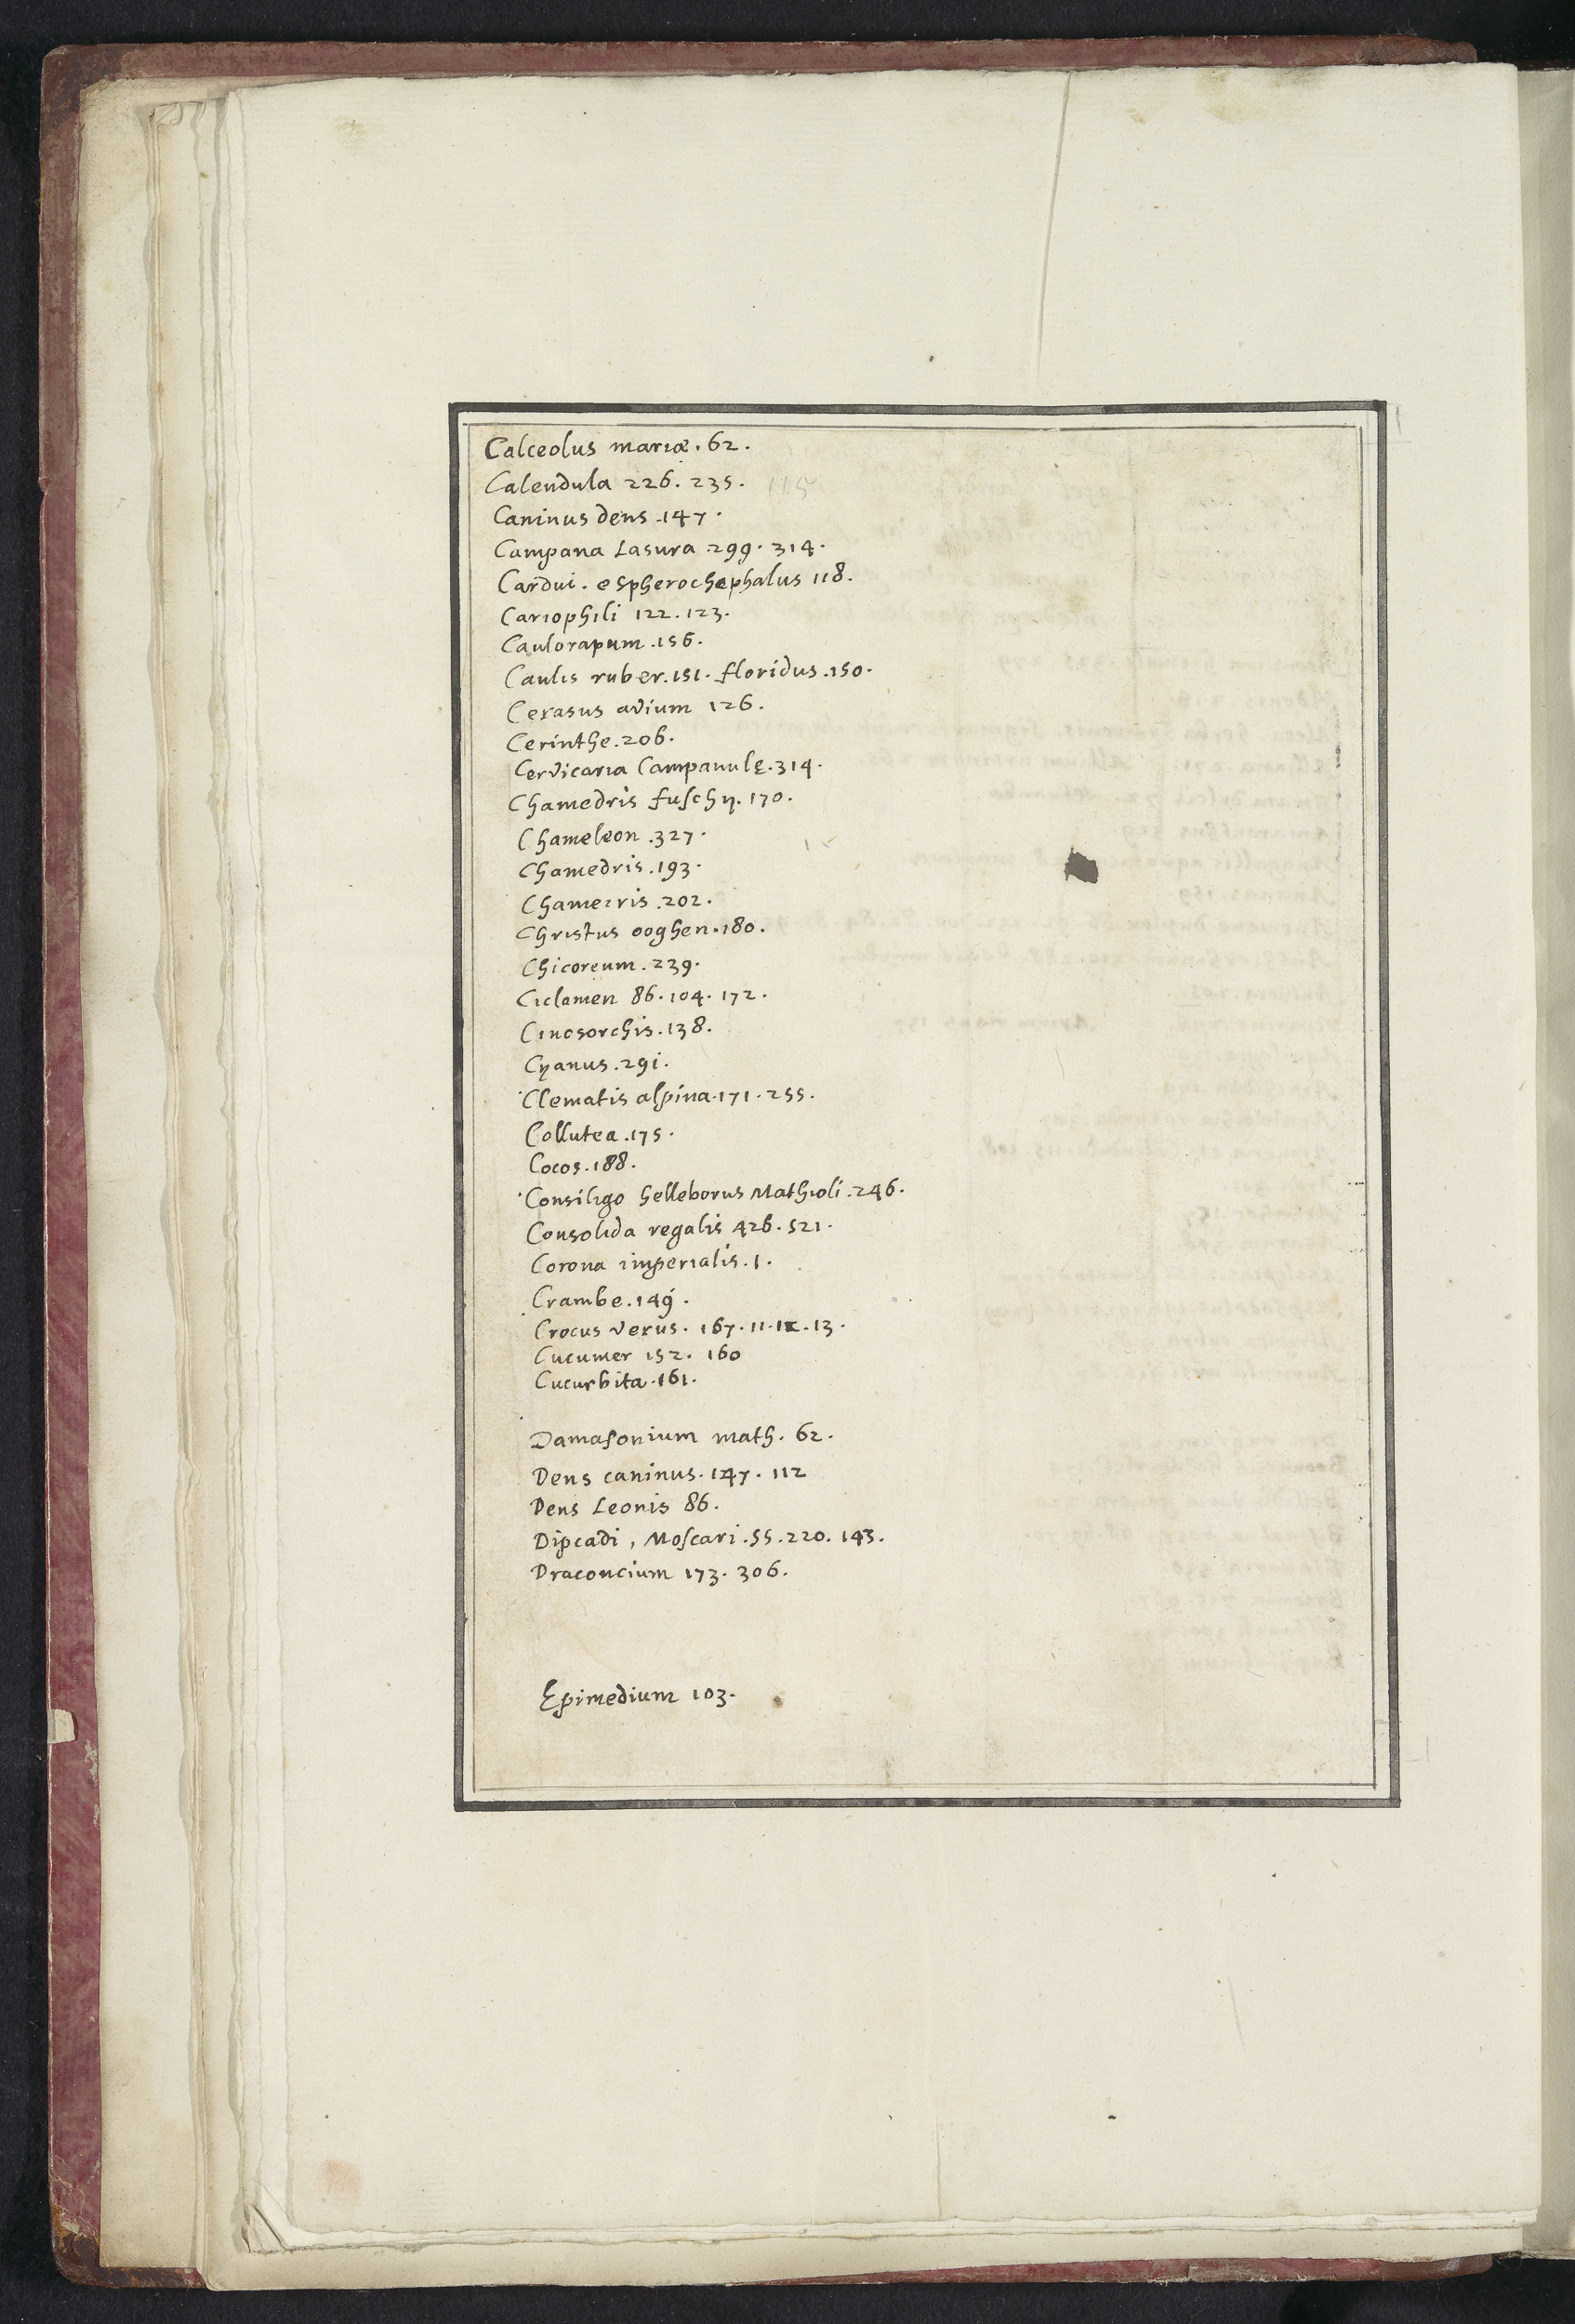 Calceolus mariæ . 62 .
Calendula 226 . 235 . 115
Caninus dens . 147 .
Campana Lasura . 299 . 314 .
Cardui . e spherochephalus 118 .
Cariophili 122 . 123 .
Caulorapum . 156 .
Caulis ruber . 151 . floridus . 150 .
Cerasus avium 126 .
Cerinthe . 206 .
Cervicaria Campanulę . 314 .
Chamedris fuschij . 170 .
Chameleon . 327 .
Chamedris . 193 .
Chameiris . 202 .
Christus ooghen . 180 .
Chicoreum . 239 .
Ciclamen 86 . 104 . 172 .
Cinosorchis . 138 .
Cyanus . 291 .
Clematis alpina . 171 . 255 .
Collutea . 175 .
Cocos . 188 .
Consiligo helleborus Mathioli . 246 .
Consolida regalis 426 . 521 .
Corona imperialis . 1 .
Crambe . 149 .
Crocus verus . 167 . 11 . 12 . 13 .
Cucumer 152 . 160
Cucurbita . 161 .
Damasonium math . 62 .
Dens caninus . 147 . 112
Dens Leonis 86 .
Dipcadi , Moscari . 55 . 220 . 143 .
Draconcium 173 . 306 .
Epimedium 103 .